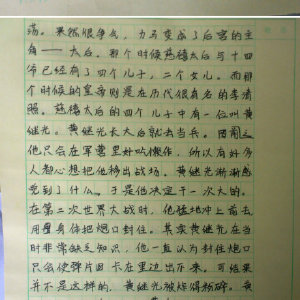 荡。果然很争气，立马变成了后宫的主
角——太后。那个时候慈禧太后与十四
爷已经有了四个儿子，二个女儿。而那
个时候的皇帝则是在历代很有名的李清
照。慈禧太后的四个儿子中有一位叫黄
继光。黄继光长大后就去当兵。因而
他只会在军营里好吃懒作，所以有好多
人都心想把他移出战场。黄继光渐渐感
觉到了什么。于是他决定干一次大的。
在第二次世界大战时，他猛地冲上前去
用星身体把炮口封住。其实黄继光在当
时非常缺乏知识，他一直认为封住炮口
只会使弹片因卡在里边出不来。可结果
并不是这样的，黄继光被炸得粉碎。